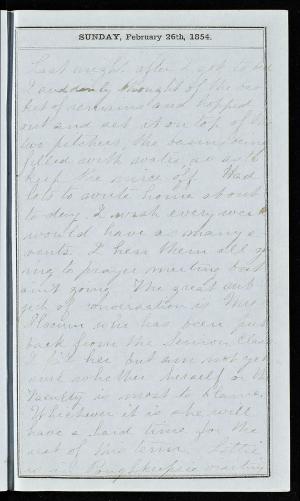 SUNDAY, February 26th, 1854.
Last night after I got to bed
I suddenly thought of the bas
ket of and hopped
out and set it on top of the
two pitchers, the basins being
filled with water, so as to
keep the mice off. Had
lots to write home about
to day. I wish every week
would have as many e
vents. I hear them all go
ing to prayer meeting but
aint going. The great sub
ject of conversation is Miss
who has been put
back from the Senior Class
I her but am not yet
sure whether herself or the
Faculty is most to blame.
Whichever it is she will
have a hard time for the
rest of this term. Lottie
is in Poughkeepsie visiting